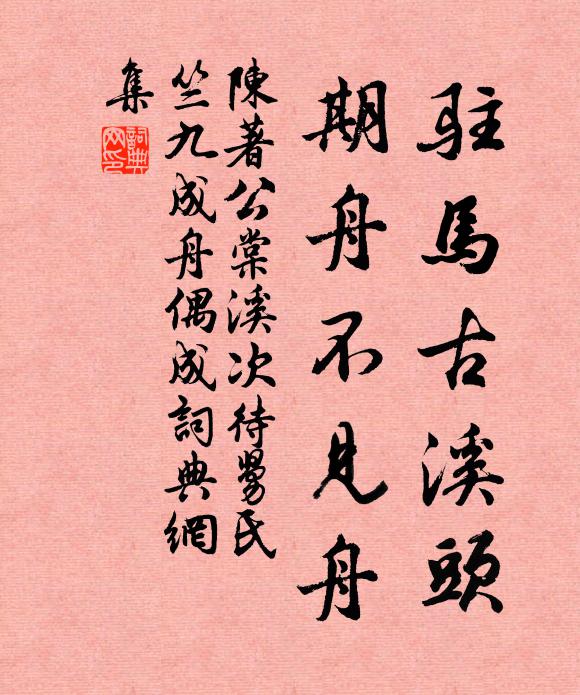 駐馬古溪頭
期舟不見舟
陳著公棠溪次待舅氏
竺九成舟偶成詞典網
集
詞典網印